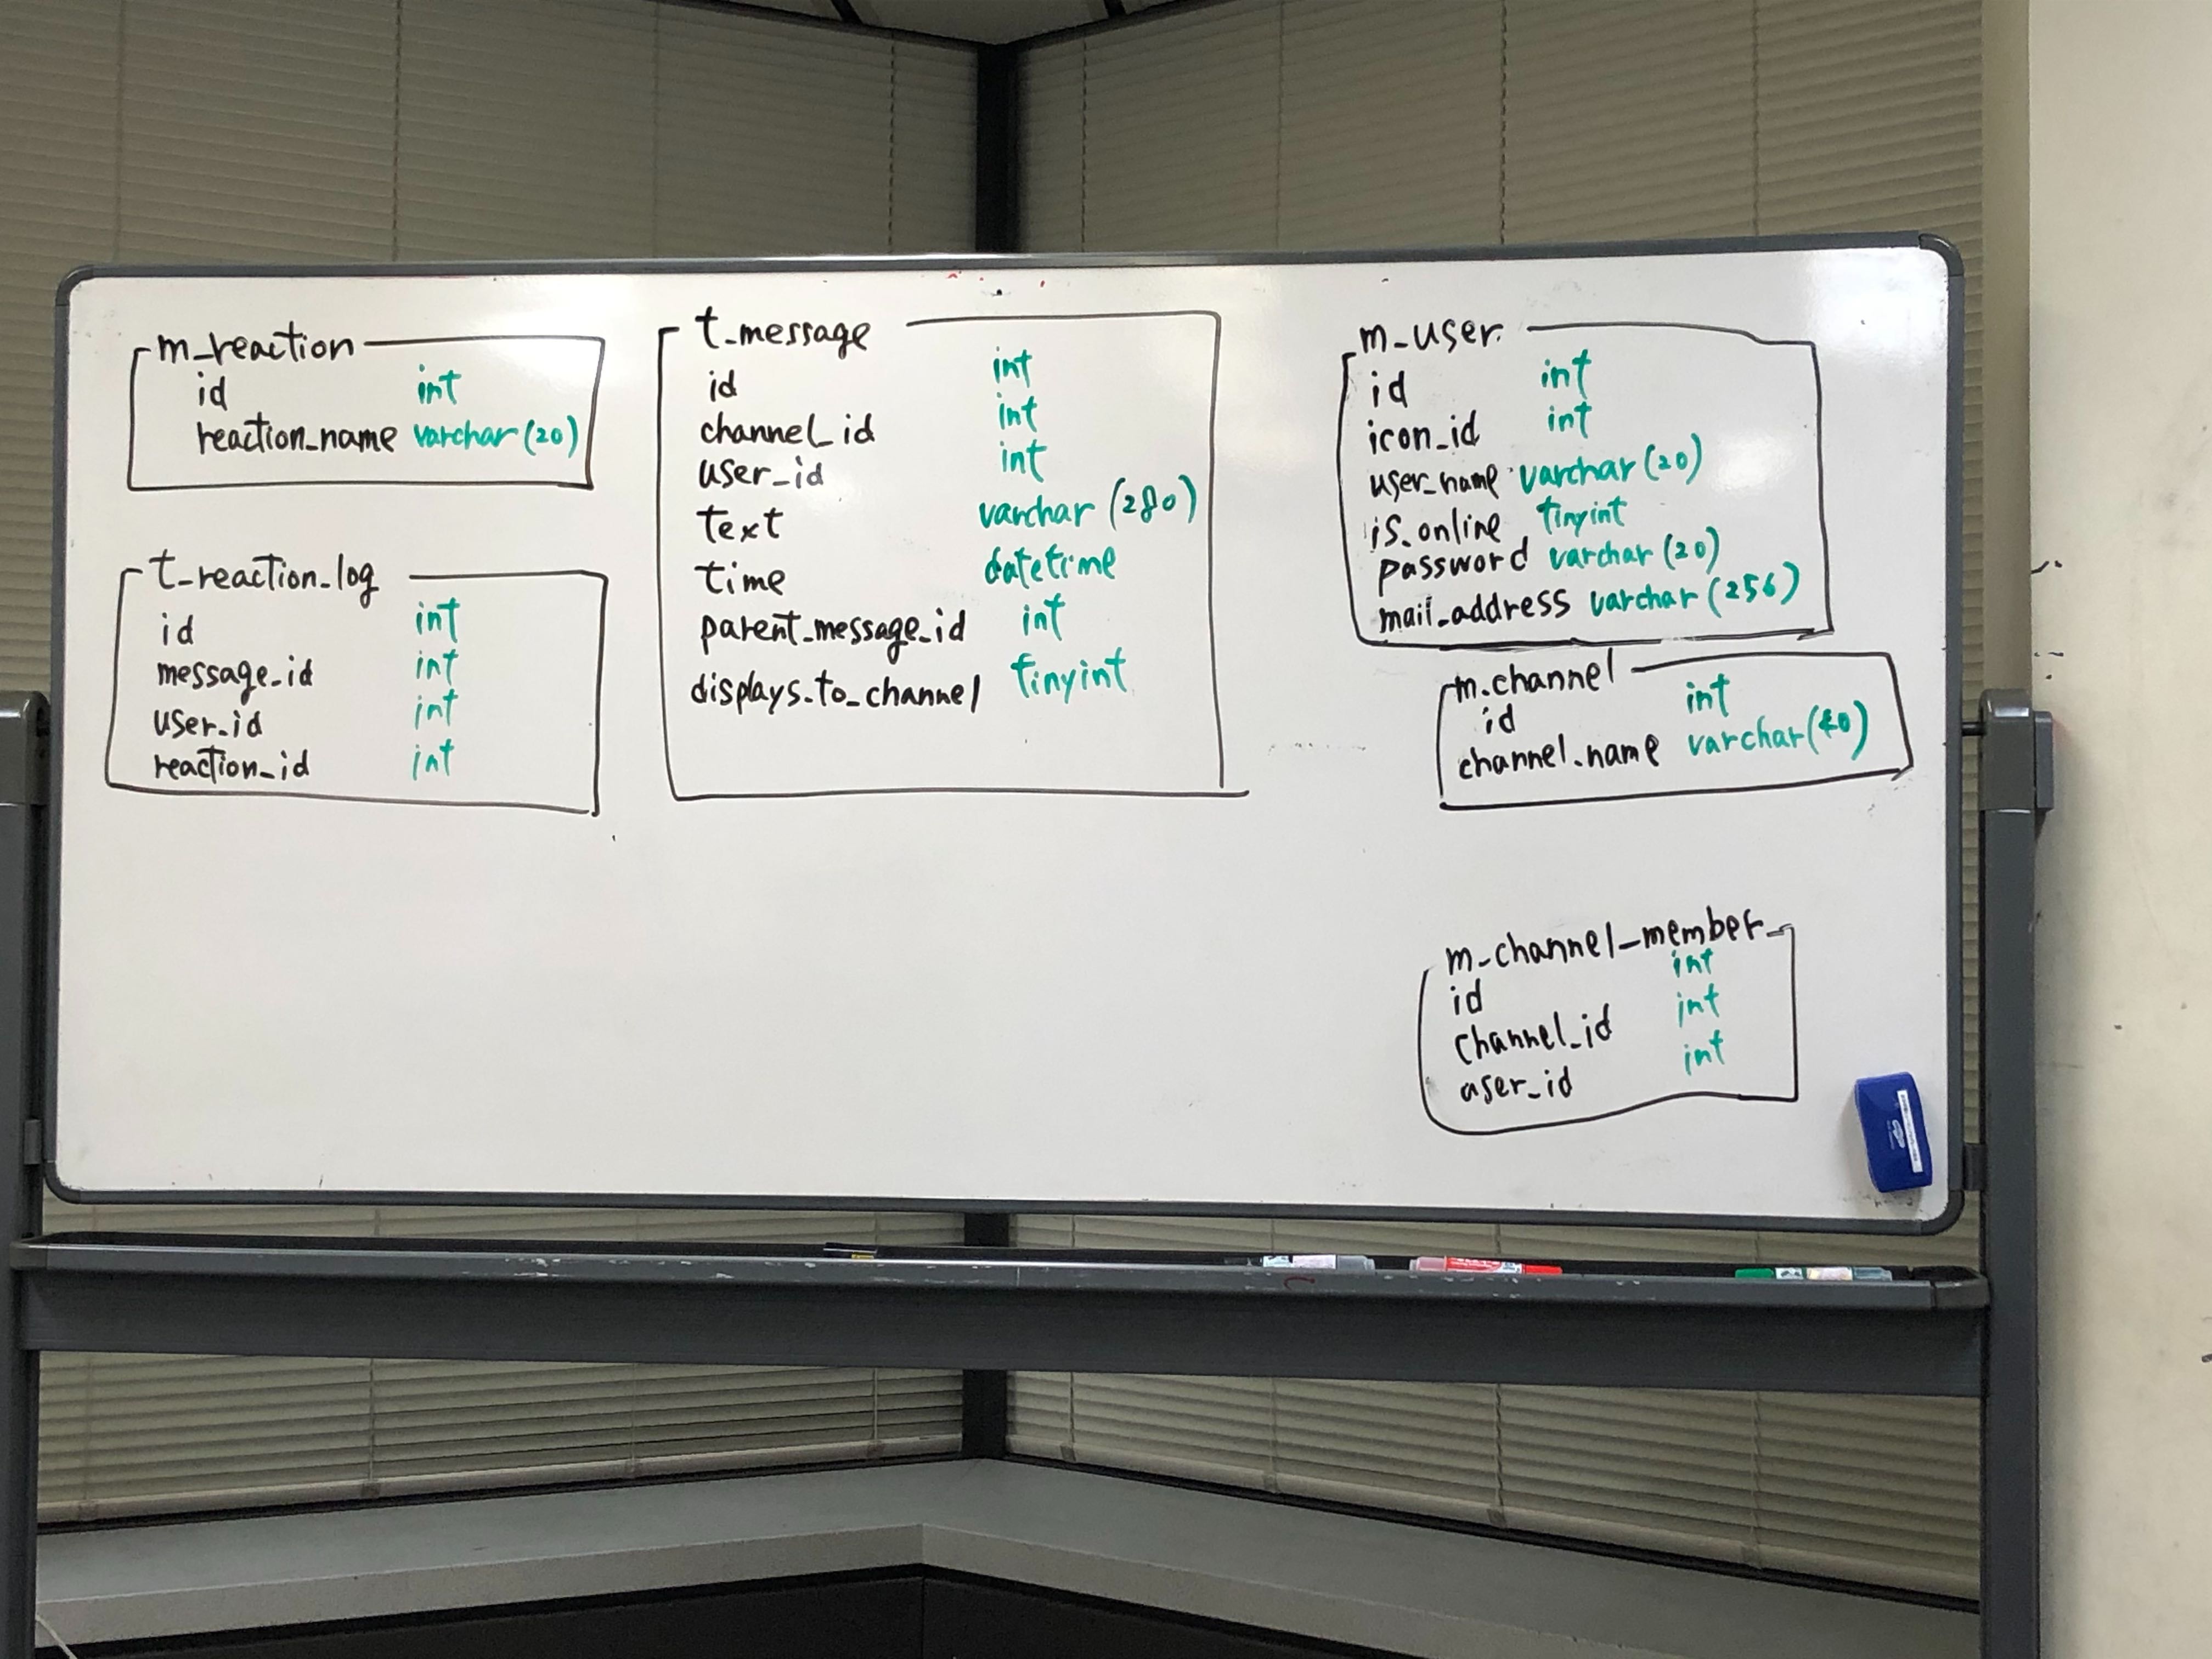 m_reaction
id int
reaction_name varchar(20)
t_reaction_log
id int
message_id int
user_id int
reaction_id int
t_message
id int
channel_id int
user_id int
text varchar(280)
time datetime
parent_message_id int
displays_to_channel tinyint
m_user
id int
icon_id int
user_name varchar(20)
is_online tinyint
password varchar(20)
mail_address varchar(256)
m_channel
id int
channel_name varchar(40)
m_channel_member
id int
channel_id int
user_id int